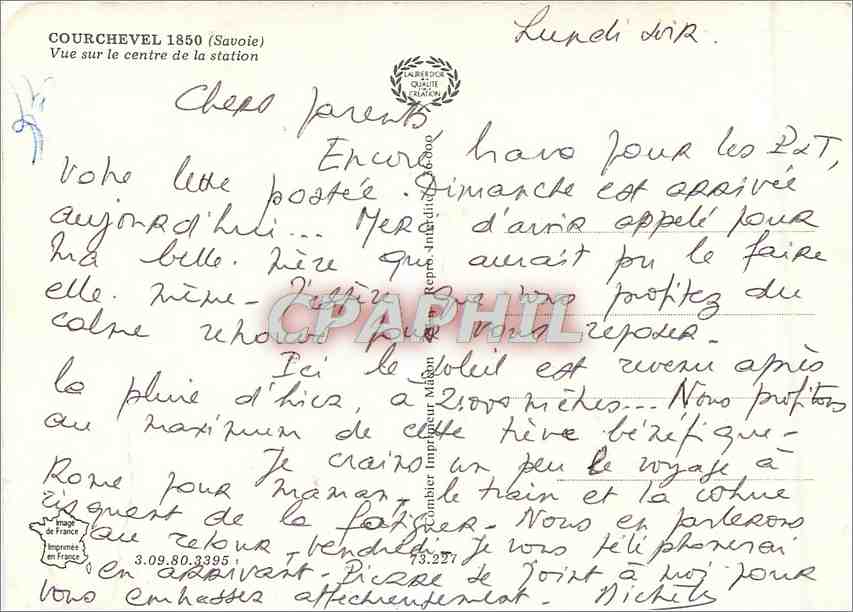 COURCHEVEL 1850 (Savoie)
Vue sur le centre de la station
Lundi soir.
LAURIER D'OR
DE LA
QUALITÉ
CRÉATION
Chers parents,
Encore bravo pour les P&T,
votre lettre postée Dimanche est arrivée
aujourd'hui... Merci d'avoir appelé pour
ma belle-mère qui aurait pu le faire
elle-même - J'espère que vous profitez du
calme retrouvé pour vous reposer.
Ici le soleil est revenu après
la pluie d'hier, à 2.000 mètres... Nous profitons
au maximum de cette trêve bénéfique -
Je crains un peu le voyage à
Rome pour maman, le train et la cohue
risquent de la fatiguer - Nous en parlerons
au retour, vendredi - Je vous téléphonerai
en arrivant - Pierre se joint à moi pour
vous embrasser affectueusement - Michèle
Image
de France
Imprimée
en France
3.09.80.3395
73.227
Combier Imprimeur Mâcon
Repro. Interdite
CPAPHIL